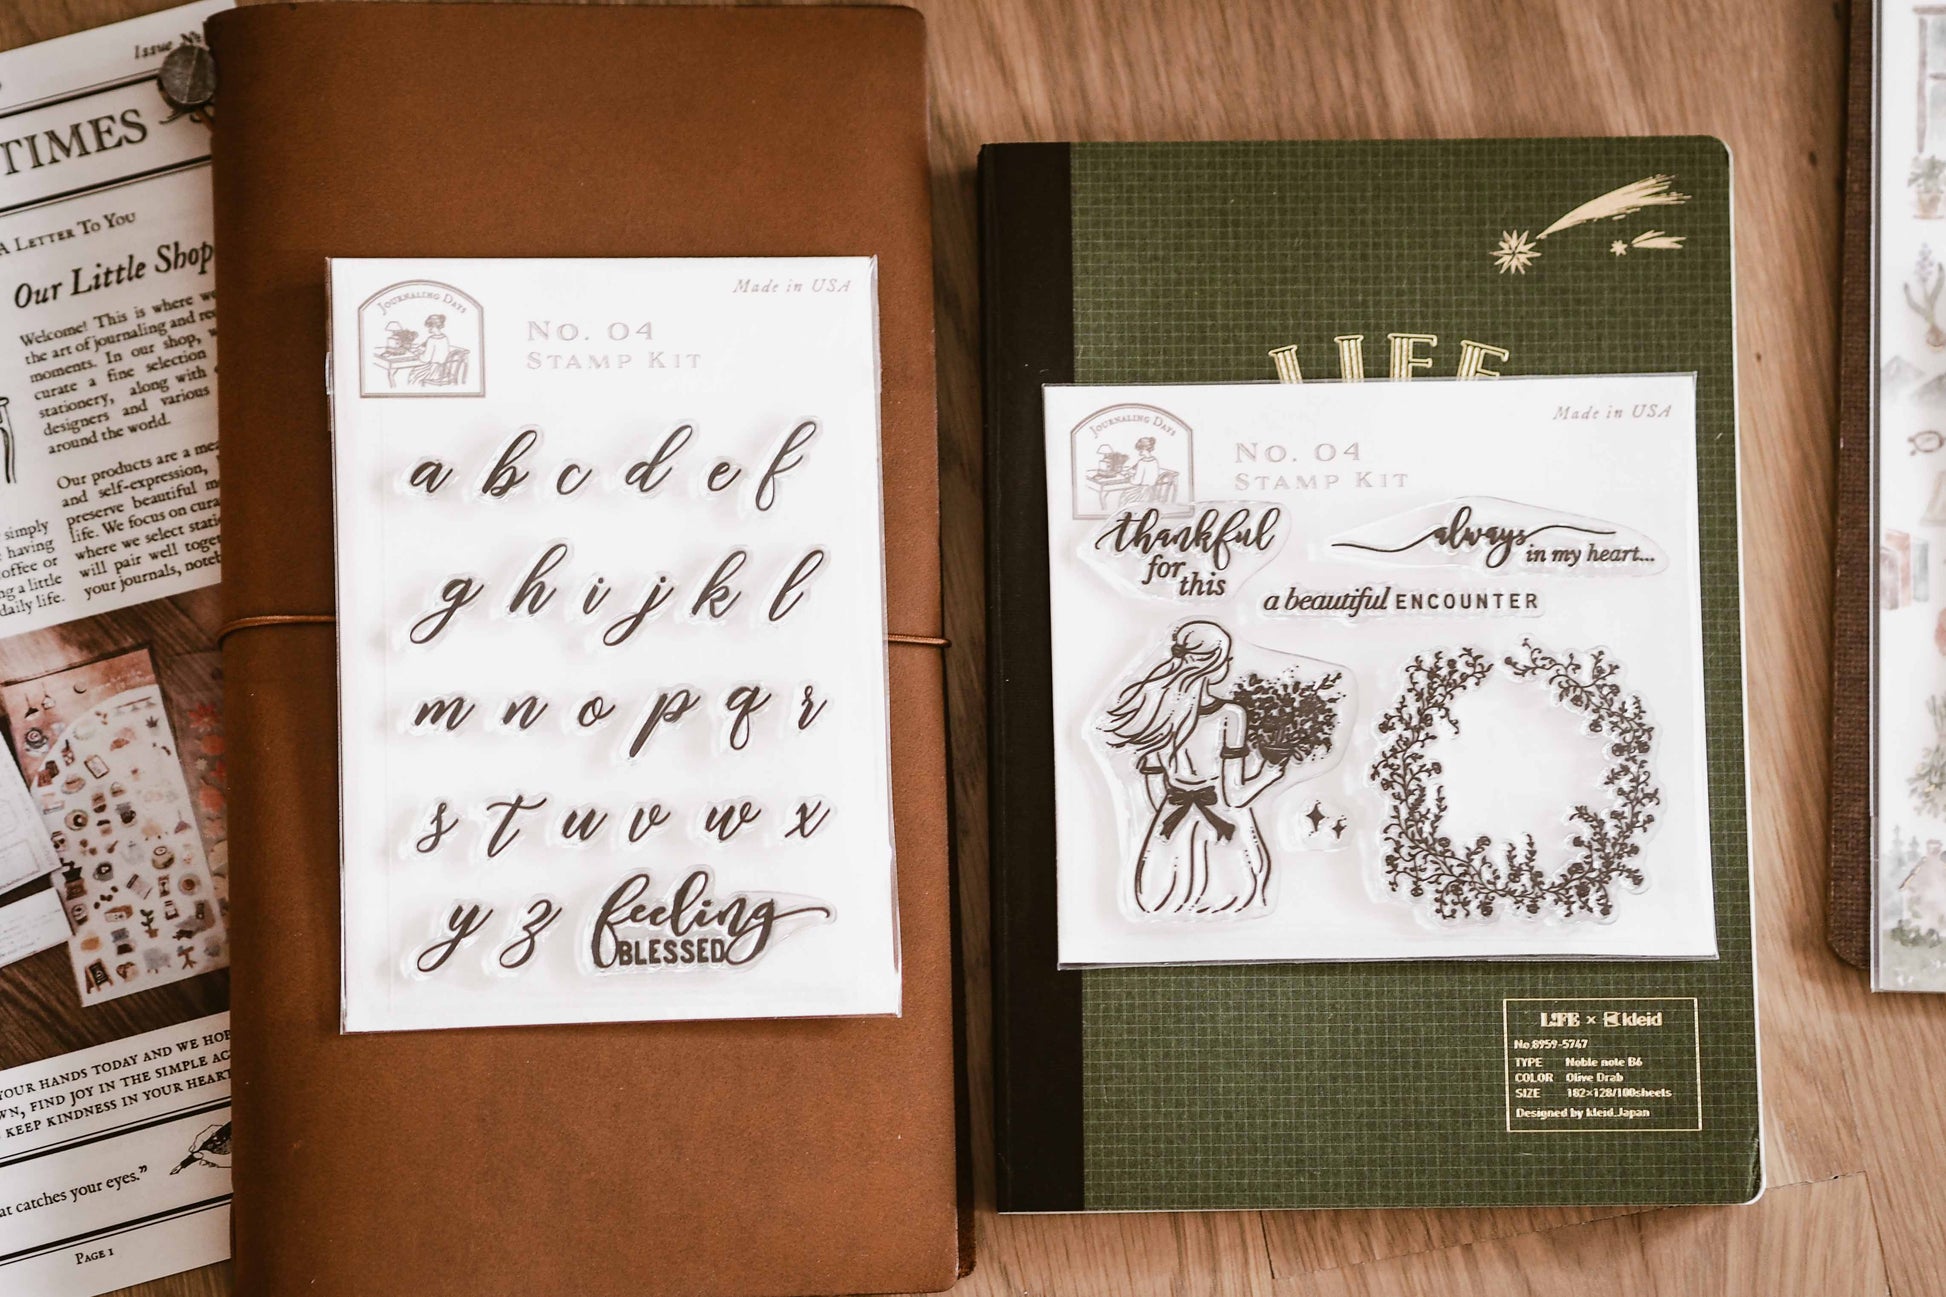 Issue No
TIMES
A Letter To You
Our Little Shop
Welcome! This is where we
the art of journaling and
moments. In our shop,
curate a fine selection
stationery, along with
designers and various
around the world.
Our products are a
and self-expression,
preserve beautiful
life. We focus on
where we select
will pair well
your journals,
simply
having
offee or
ng a little
daily life.
YOUR HANDS TODAY AND WE
FIND JOY IN THE SIMPLE
KEEP KINDNESS IN YOUR HEART
at catches your eyes."
Page 1
Journaling Days
Made in USA
No. 04
Stamp Kit
a b c d e f
g h i j k l
m n o p q r
s t u v w x
y z feeling
BLESSED
LIFE
Journaling Days
Made in USA
No. 04
Stamp Kit
thankful
for
this
always
in my heart...
a beautiful ENCOUNTER
LIFE × kleid
No.8959-5747
TYPE Noble note B6
COLOR Olive Drab
SIZE 182×128/100sheets
Designed by kleid.Japan